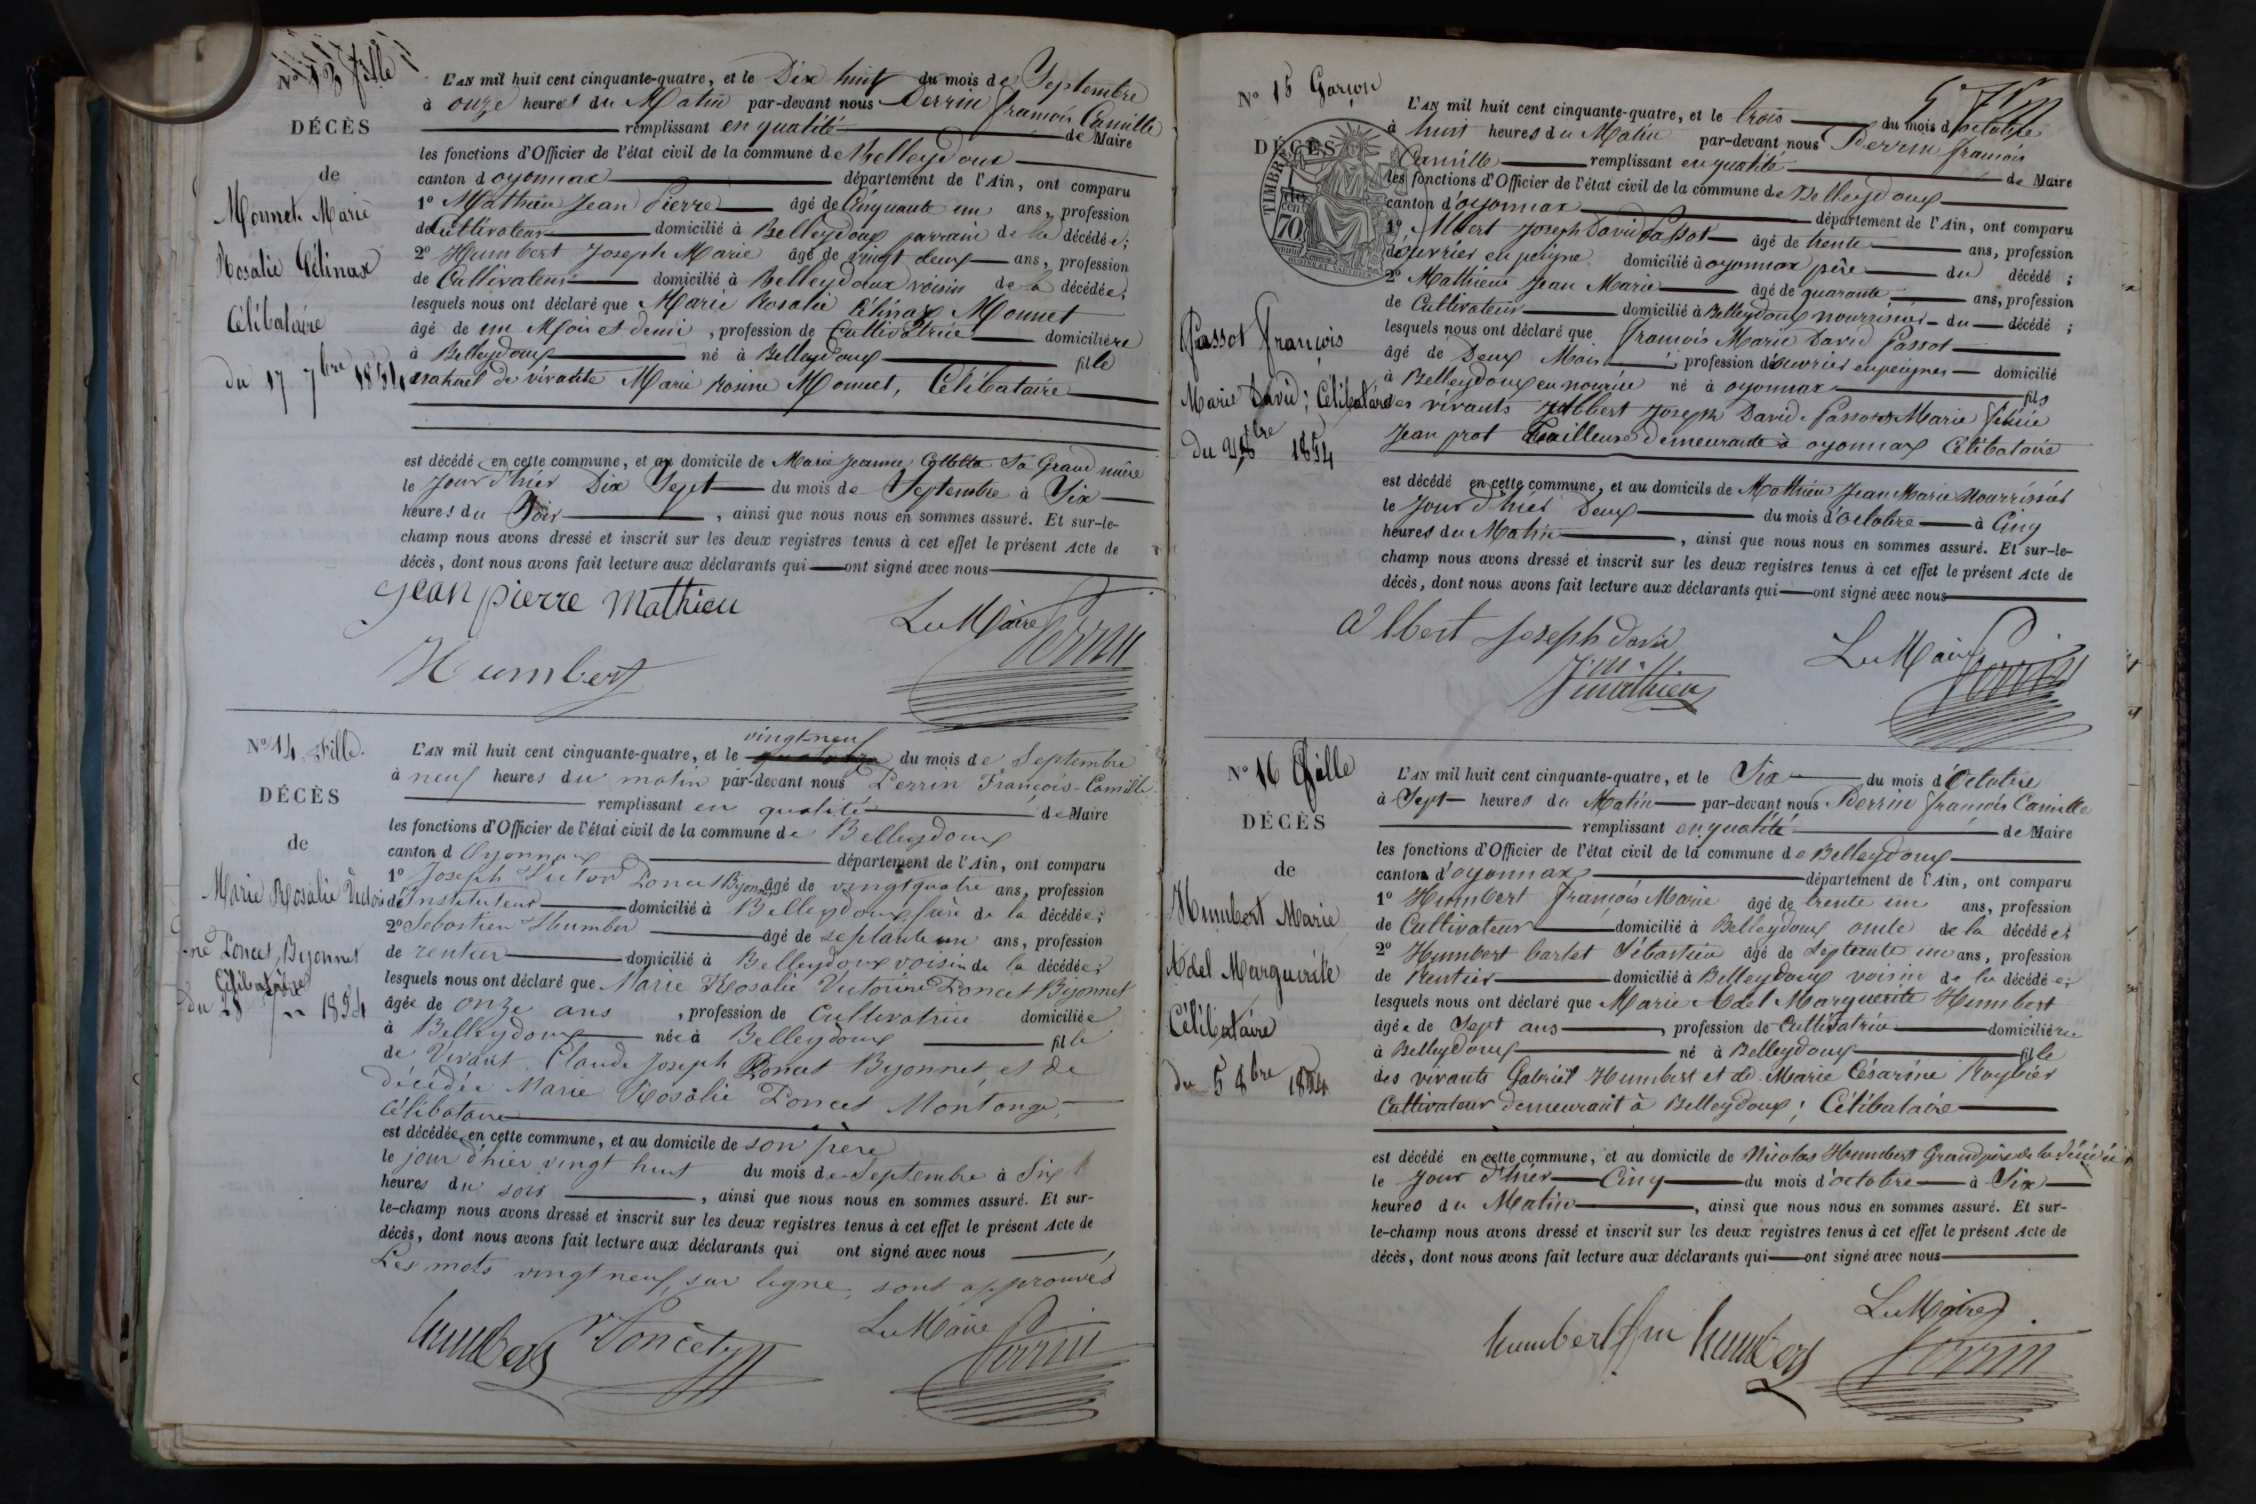 Nº 13 fille
DÉCÈS
de
Monnet Marie
Rosalie Célinax
Célibataire
du 17 7bre 1854
L'AN mil huit cent cinquante-quatre, et le Dix huit du mois de Septembre
à onze heures du Matin par-devant nous Perrin françois Camille
remplissant en qualité de Maire
les fonctions d'Officier de l'état civil de la commune de Belleydoux
canton d'oyonnax département de l'Ain, ont comparu
1º Mathieu Jean Pierre âgé de Cinquante un ans, profession
de Cultivateur domicilié à Belleydoux parrain de la décédée;
2º Humbert Joseph Marie âgé de vingt deux ans, profession
de Cultivateur domicilié à Belleydoux voisin de la décédée;
lesquels nous ont déclaré que Marie Rosalie Célinax Monnet
âgé de un Mois et demi, profession de Cultivatrice domiciliée
à Belleydoux né à Belleydoux fille
naturel de vivante Marie Rosine Monnet, Célibataire
est décédé en cette commune, et au domicile de Marie Jeanne Colletta Sa Grand mère
le Jour d'hier Dix Sept du mois de Septembre à Six
heures du Soir, ainsi que nous nous en sommes assuré. Et sur-le-
champ nous avons dressé et inscrit sur les deux registres tenus à cet effet le présent Acte de
décès, dont nous avons fait lecture aux déclarants qui ont signé avec nous
Jean pierre Mathieu
Le Maire Perrin
Humbert
Nº 14 Fille.
DÉCÈS
de
Marie Rosalie Victori
ne Poncet Byonnet
Célibataire
du 28 1854
vingt neuf
L'AN mil huit cent cinquante-quatre, et le du mois de Septembre
à neuf heures du matin par-devant nous Perrin François-Camille
remplissant en qualité de Maire
les fonctions d'Officier de l'état civil de la commune de Belleydoux
canton d Oyonnax département de l'Ain, ont comparu
1º Joseph Victor Poncet Byonnet âgé de vingt quatre ans, profession
d'Instituteur domicilié à Belleydoux frère de la décédée;
2º Sebastien Humbert âgé de septante un ans, profession
de rentier domicilié à Belleydoux voisin de la décédée;
lesquels nous ont déclaré que Marie Rosalie Victorine Poncet Byonnet
âgée de onze ans, profession de Cultivatrice domiciliée
à Belleydoux née à Belleydoux fille
de Vivant Claude Joseph Poncet Byonnet, et de
décédée Marie Rosalie Poncet Montange,
Célibataire
est décédée en cette commune, et au domicile de son père
le jour d'hier vingt huit du mois de Septembre à Six
heures du soir, ainsi que nous nous en sommes assuré. Et sur-
le-champ nous avons dressé et inscrit sur les deux registres tenus à cet effet le présent Acte de
décès, dont nous avons fait lecture aux déclarants qui ont signé avec nous
Les mots vingt neuf, sur ligne, sont approuvés
Humbert Poncet
Le Maire Perrin
Nº 15 Garçon
DÉCÈS
TIMBRE
70
Passot François
Marie David; Célibataire
1854
L'AN mil huit cent cinquante-quatre, et le trois du mois d'octobre
à huit heures du Matin par-devant nous Perrin françois
Camille remplissant en qualité de Maire
les fonctions d'Officier de l'état civil de la commune de Belleydoux
canton d'oyonnax département de l'Ain, ont comparu
1º Albert Joseph David Passot âgé de trente ans, profession
d'ouvrier en peigne domicilié à oyonnax père du décédé;
2º Mathieu Jean Marie âgé de quarante ans, profession
de Cultivateur domicilié à Belleydoux nourrissier du décédé;
lesquels nous ont déclaré que françois Marie David Passot
âgé de Deux Mois, profession d'ouvrier en peignes domicilié
à Belleydoux en nourice né à oyonnax fils
des vivants Albert Joseph David Passot Marie félicie
Jean prot Tailleuse demeurante à oyonnax Célibataire
est décédé en cette commune, et au domicile de Mathieu Jean Marie Nourrissier
le Jour d'hier Deux du mois d'octobre à Cinq
heures du Matin, ainsi que nous nous en sommes assuré. Et sur-le-
champ nous avons dressé et inscrit sur les deux registres tenus à cet effet le présent Acte de
décès, dont nous avons fait lecture aux déclarants qui ont signé avec nous
Albert Joseph david
Le Maire Perrin
Jmathieu
Nº 16 Fille
DÉCÈS
de
Humbert Marie
Adel Marguerite
Célibataire
du 5 8bre 1854
L'AN mil huit cent cinquante-quatre, et le Six du mois d'Octobre
à Sept heures du Matin par-devant nous Perrin françois Camille
remplissant en qualité de Maire
les fonctions d'Officier de l'état civil de la commune de Belleydoux
canton d'oyonnax département de l'Ain, ont comparu
1º Humbert françois Marie âgé de trente un ans, profession
de Cultivateur domicilié à Belleydoux oncle de la décédée;
2º Humbert barlet Sébastien âgé de Septante un ans, profession
de Rentier domicilié à Belleydoux voisin de la décédée;
lesquels nous ont déclaré que Marie Adel Marguerite Humbert
âgée de Sept ans, profession de Cultivatrice domiciliée
à Belleydoux né à Belleydoux fille
des vivants Gabriel Humbert et de Marie Césarine Roybier
Cultivateur demeurant à Belleydoux; Célibataire
est décédé en cette commune, et au domicile de Nicolas Humbert Grand père de la décédée
le Jour d'hier Cinq du mois d'octobre à Six
heures du Matin, ainsi que nous nous en sommes assuré. Et sur-
le-champ nous avons dressé et inscrit sur les deux registres tenus à cet effet le présent Acte de
décès, dont nous avons fait lecture aux déclarants qui ont signé avec nous
Le Maire
humbert fm humbert Perrin